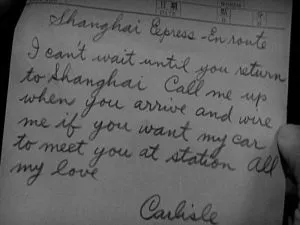 Shanghai Express - En route
I can't wait until you return
to Shanghai Call me up
when you arrive and wire
me if you want my car
to meet you at station All
my love
Carlisle